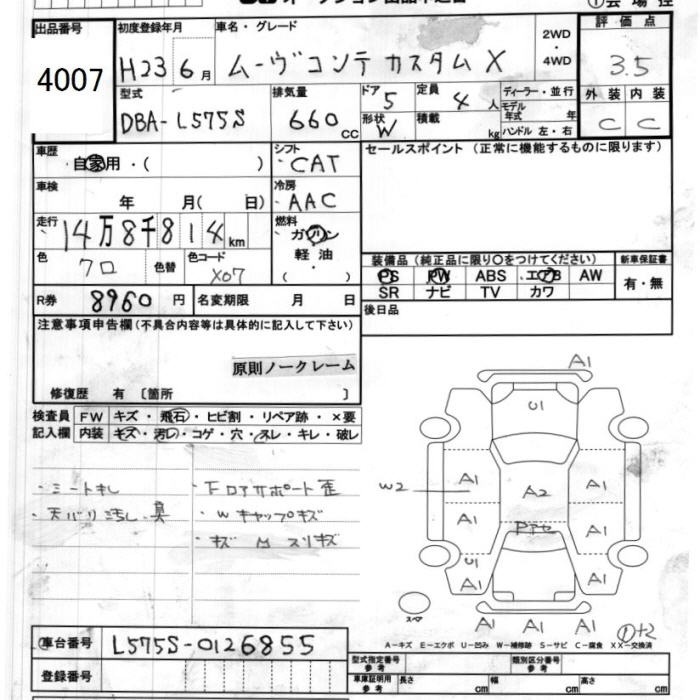 出品番号
4007
初度登録年月
H23 6月
車名・グレード
ムーヴコンテ カスタム X
2WD・4WD
評価点
3.5
型式
DBA-L575S
排気量
660 cc
ドア
5
定員
4 人
ディーラー・並行
形状
W
積載
kg
モデル年式 年
ハンドル 左・右
外装 内装
C C
車歴
自家用・( )
シフト
CAT
セールスポイント (正常に機能するものに限ります)
車検
年 月( 日)
冷房
AAC
走行
14万8千814 km
燃料
ガソリン
軽油
( )
色
クロ
色替
色コード
X07
装備品 (純正品に限り〇をつけてください)
PS PW ABS エアB AW
SR ナビ TV カワ
新車保証書
有・無
R券 8960 円
名変期限 月 日
後日品
注意事項申告欄(不具合内容等は具体的に記入して下さい)
原則ノークレーム
修復歴 有 〔箇所 〕
検査員記入欄
FW キズ・飛石・ヒビ割・リペア跡・×要
内装 キズ・汚レ・コゲ・穴・スレ・キレ・破レ
・天バリ汚し
・フロアサポート歪
・Wキャップキズ
A1
U1
W2
A1
A2
A1
A1
A1
U1
A1
A1
A1 A1 A1
スペア
①+2
A-キズ E-エクボ U-凹み W-補修跡 S-サビ C-腐食 XX-交換済
車台番号
L575S-0126855
登録番号
型式指定番号 参考
類別区分番号 参考
車庫証明用 参考
長さ cm
幅 cm
高さ cm